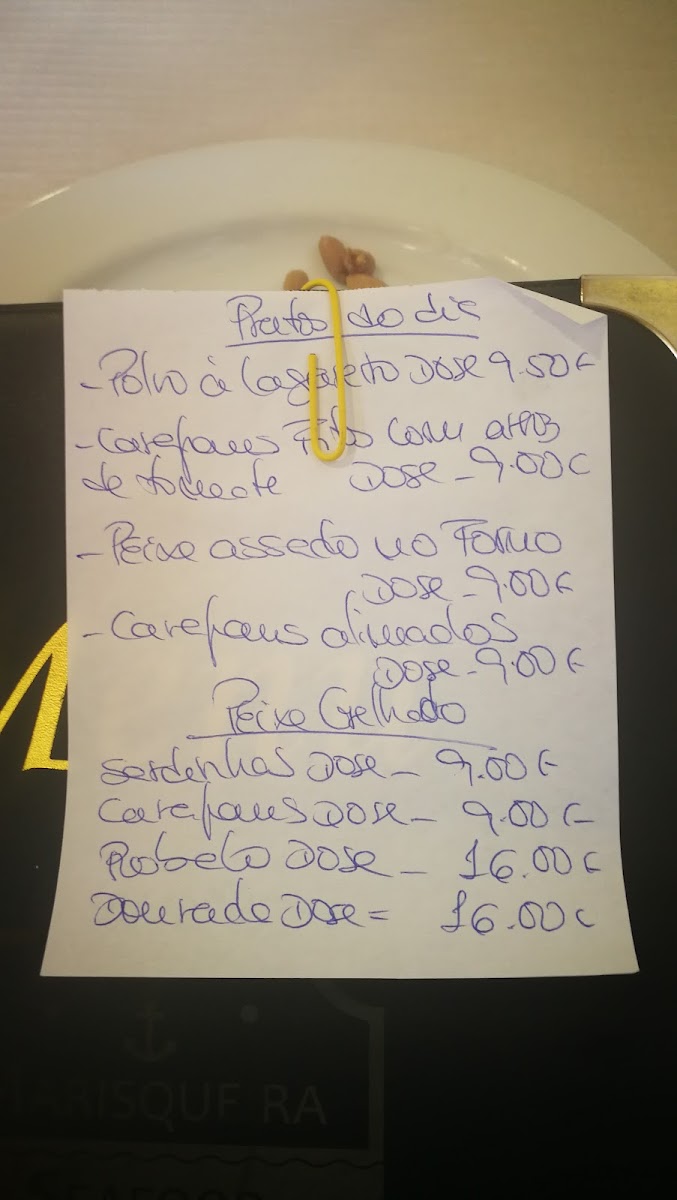 Pratos do dia
- Polvo à Lagareto Dose 9.50€
- Carapaus Fritos com arroz
de tomate Dose - 9.00€
- Peixe assado no Forno
Dose - 9.00€
- Carapaus alimados
Dose - 9.00€
Peixe Grelhado
Sardinhas Dose - 9.00€
Carapaus Dose - 9.00€
Robalo Dose - 16.00€
Dourada Dose = 16.00€
MARISQUE RA
SEAFOOD